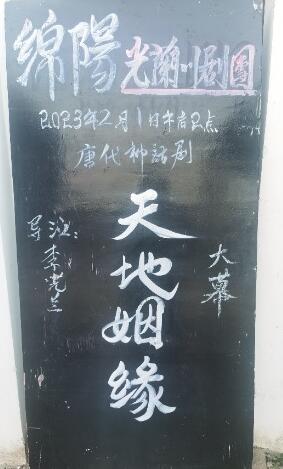 綿陽光蘭川剧團
2023年2月1日午后2点
唐代神話剧
天地姻缘
大幕
导演:李光兰